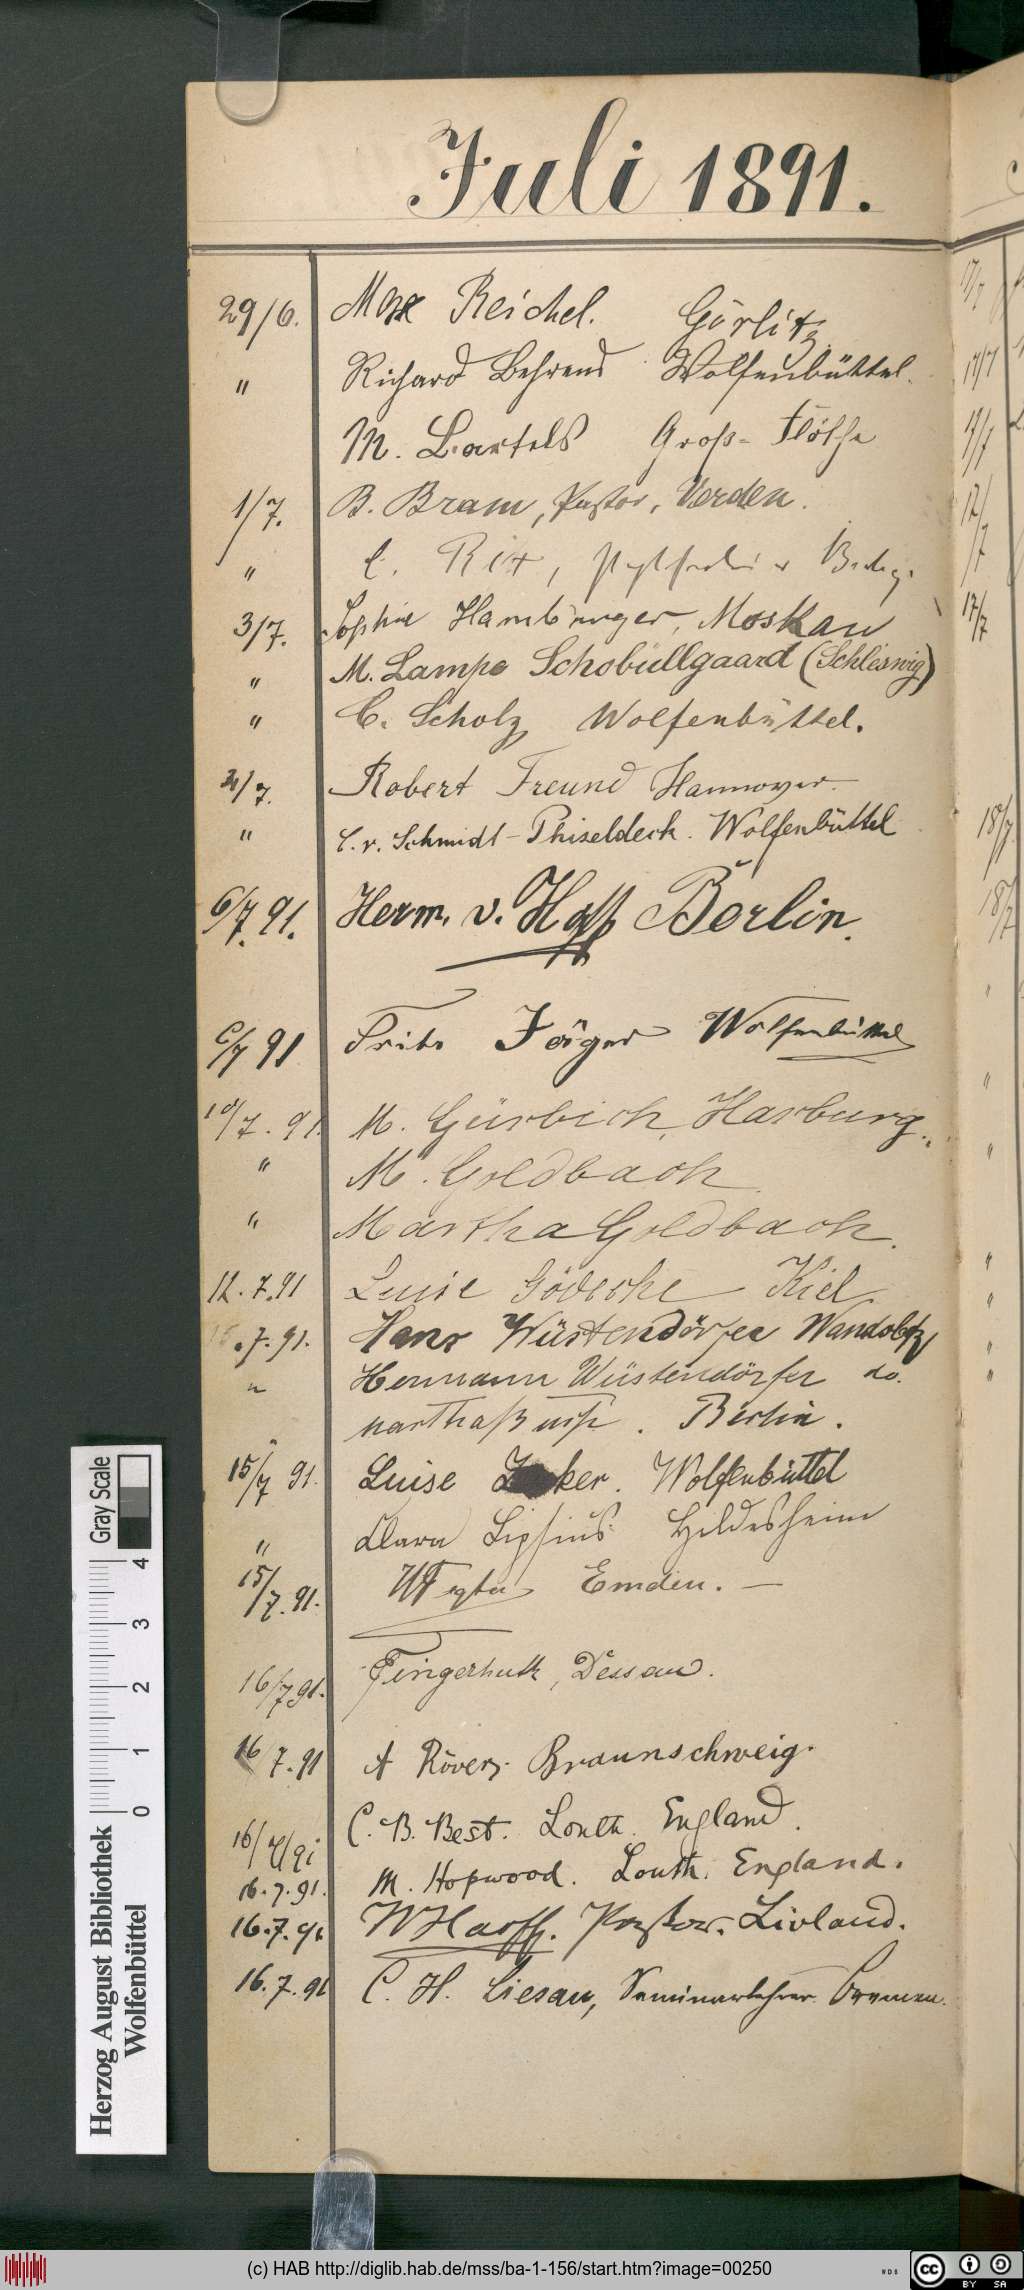 Juli 1891.
29/6. Max Reichel. Görlitz.
" Richard Behrens Wolfenbüttel.
M. Bartels Groß-Flöthe
1/7. B. Bram, Pastor, Verden.
" C.
3/7. Sophie Hamburger, Moskau
" M. Lampe Schobüllgaard (Schleswig)
" C. Scholz Wolfenbüttel.
4/7. Robert Freund Hannover.
" C. v. Schmidt-Phiseldeck. Wolfenbüttel
6/7. 91. Herm. v. Berlin.
6/7 91 Fritz Jäger Wolfenbüttel
10/7. 91. M. Harburg.
" M. Goldbach
" Martha Goldbach.
12.7.91 Luise Gödecke Kiel
.7.91. Hans Wüstendörfer
" Hermann Wüstendörfer do.
" Berlin.
15/7 91. Luise Wolfenbüttel
" Clara Lipsius. Hildesheim
15/7.91. Emden. —
16/7 91. Fingerhuth, Dessau.
16/7.91 A Röver. Braunschweig.
16/7/91 C. B. Best. Louth. England.
16.7.91. M. Hopwood. Louth. England.
16.7.91 W Harff. Pastor. Livland.
16.7.91 C. H. Liesau, Seminarlehrer. Bremen.
17/7
17/7
17/7
17/7
17/7
18/7
18/7
"
"
"
"
"
"
"
Herzog August Bibliothek
Wolfenbüttel
0 1 2 3 4
Gray Scale
(c) HAB http://diglib.hab.de/mss/ba-1-156/start.htm?image=00250
WDB
cc BY SA